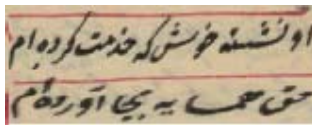 او نشسته خوش که خدمت کرده ام
حق همسایه بجا آورده ام